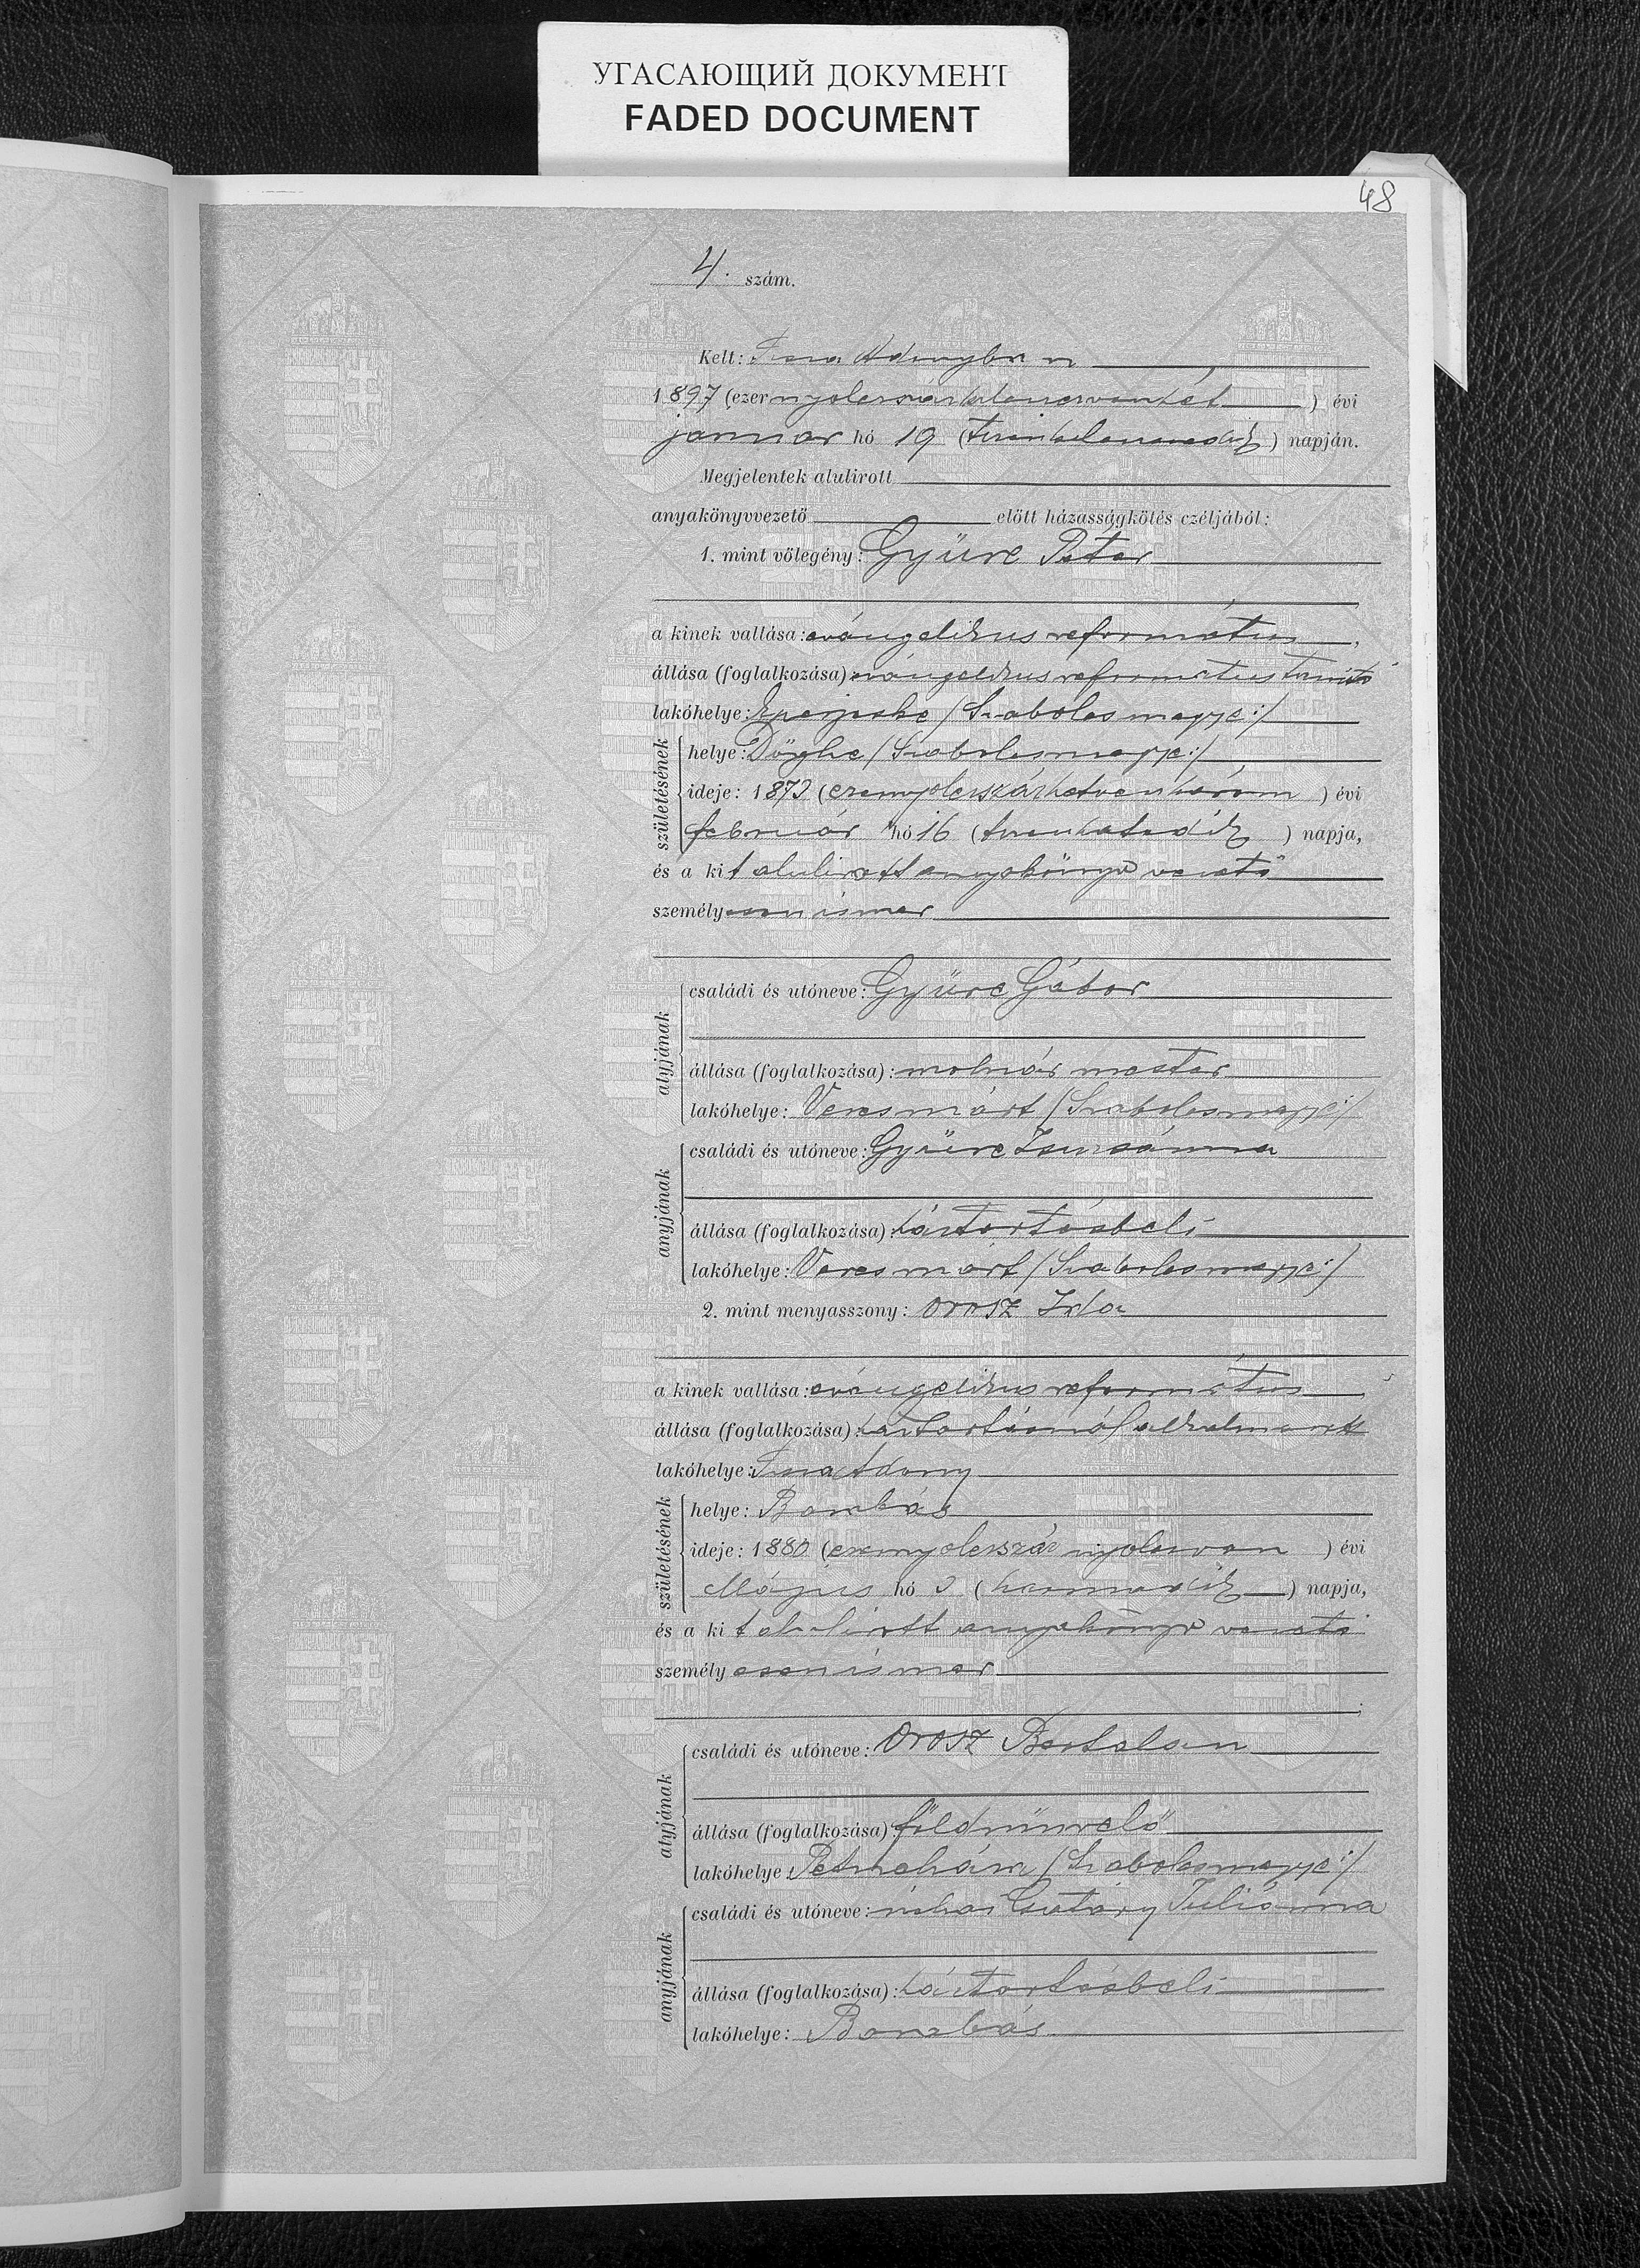 УГАСАЮЩИЙ ДОКУМЕНТ
FADED DOCUMENT
48
4. szám.
Kelt: Tisza Adonyban,
1897 (ezer nyolcszázkilencvenhét) évi
januar hó 19 (tizenkilencedik) napján.
Megjelentek alulirott
anyakönyvvezető előtt házasságkötés czéljából:
1. mint vőlegény: Gyüre Péter
a kinek vallása: evángelikus református,
állása (foglalkozása) evángelikus református tanító
lakóhelye: Eperjeske /Szabolcs megye:/
születésének
helye: Döghe /Szabolcsmegye:/
ideje: 1873 (ezernyolcszázhetvenhárom) évi
február hó 16 (tizenhatodik) napja,
és a kit alulirott anyakönyv vezető
személyesen ismer
atyjának
családi és utóneve: Gyüre Gábor
állása (foglalkozása): molnár mester
lakóhelye: Veresmárt /Szabolcsmegye:/
anyjának
családi és utóneve: Gyüre Zsuzsánna
állása (foglalkozása): háztartásbeli
lakóhelye: Veresmárt /Szabolcsmegye:/
2. mint menyasszony: Orosz Ida
a kinek vallása: evángelikus református,
állása (foglalkozása): háztartásnál alkalmazott
lakóhelye: Tisza Adony
születésének
helye:
ideje: 1880 (ezernyolcszáz nyolcvan) évi
Május hó 3 (harmadik) napja,
és a kit alulirott anyakönyv vezető
személyesen ismer
atyjának
családi és utóneve: Orosz Bertalan
állása (foglalkozása) földmüvelő
lakóhelye: /Szabolcsmegye:/
anyjának
családi és utóneve: néhai Csatáry Juliánna
állása (foglalkozása): háztartásbeli
lakóhelye: